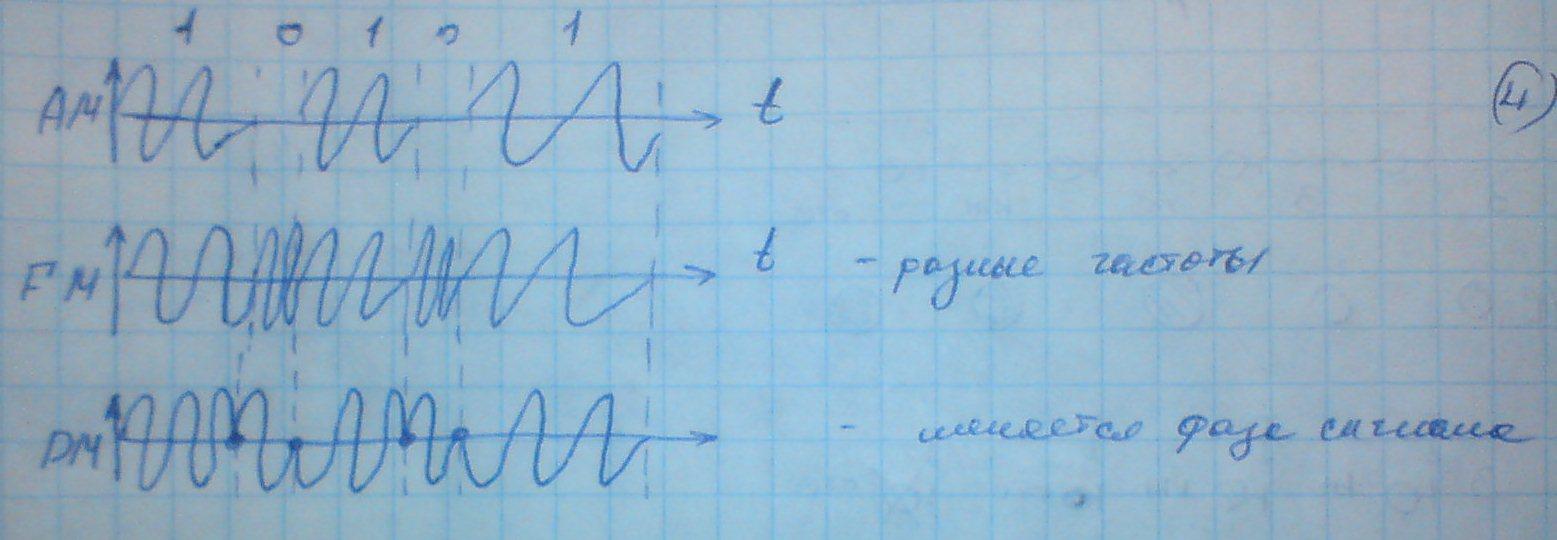 1 0 1 0 1
AM t 4
FM t - разные частоты
DM - меняется фаза сигнала